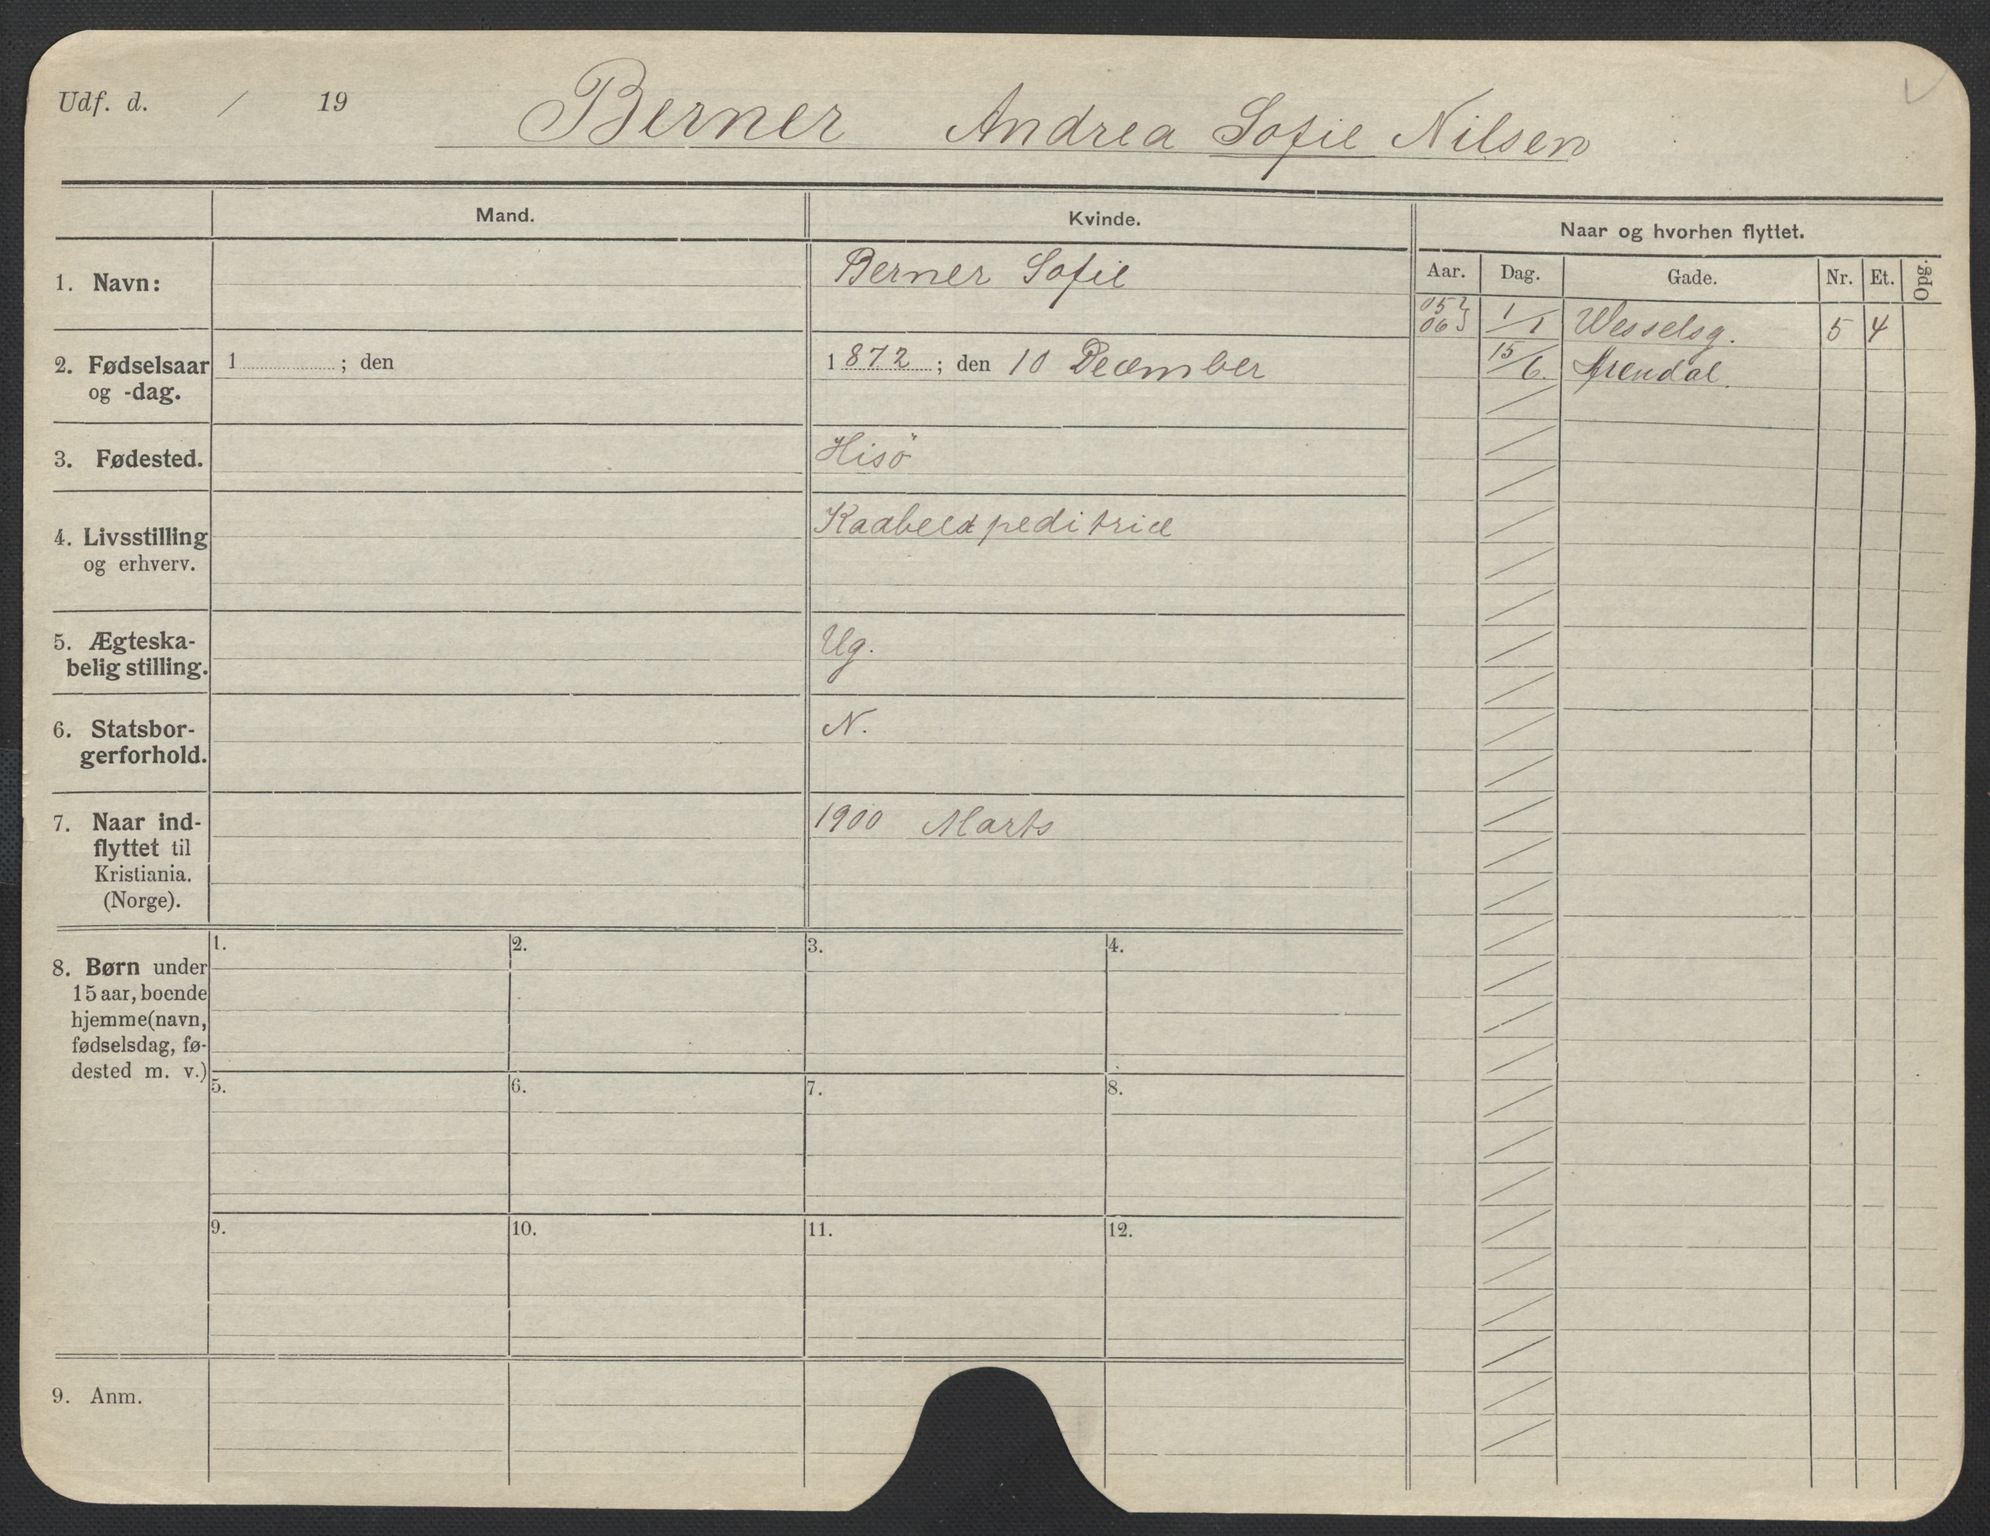 Udf. d. / 19 Berner Andrea Sofie Nilsen
Mand. Kvinde. Naar og hvorhen flyttet.
Aar. Dag. Gade. Nr. Et. Opg.
1. Navn: Berner Sofie
05 06 1/1 Wesselsg. 5 4
15/6. Arendal.
2. Fødselsaar og -dag. 1 ; den 1872 ; den 10 December
3. Fødested. Hisö
4. Livsstilling og erhverv. Kaabeexpeditrice
5. Ægteska-
belig stilling. Ug.
6. Statsbor-
gerforhold. N.
7. Naar ind-
flyttet til
Kristiania.
(Norge). 1900 Marts
8. Børn under
15 aar, boende
hjemme (navn,
fødselsdag, fø-
dested m. v.)
1. 2. 3. 4.
5. 6. 7. 8.
9. 10. 11. 12.
9. Anm.